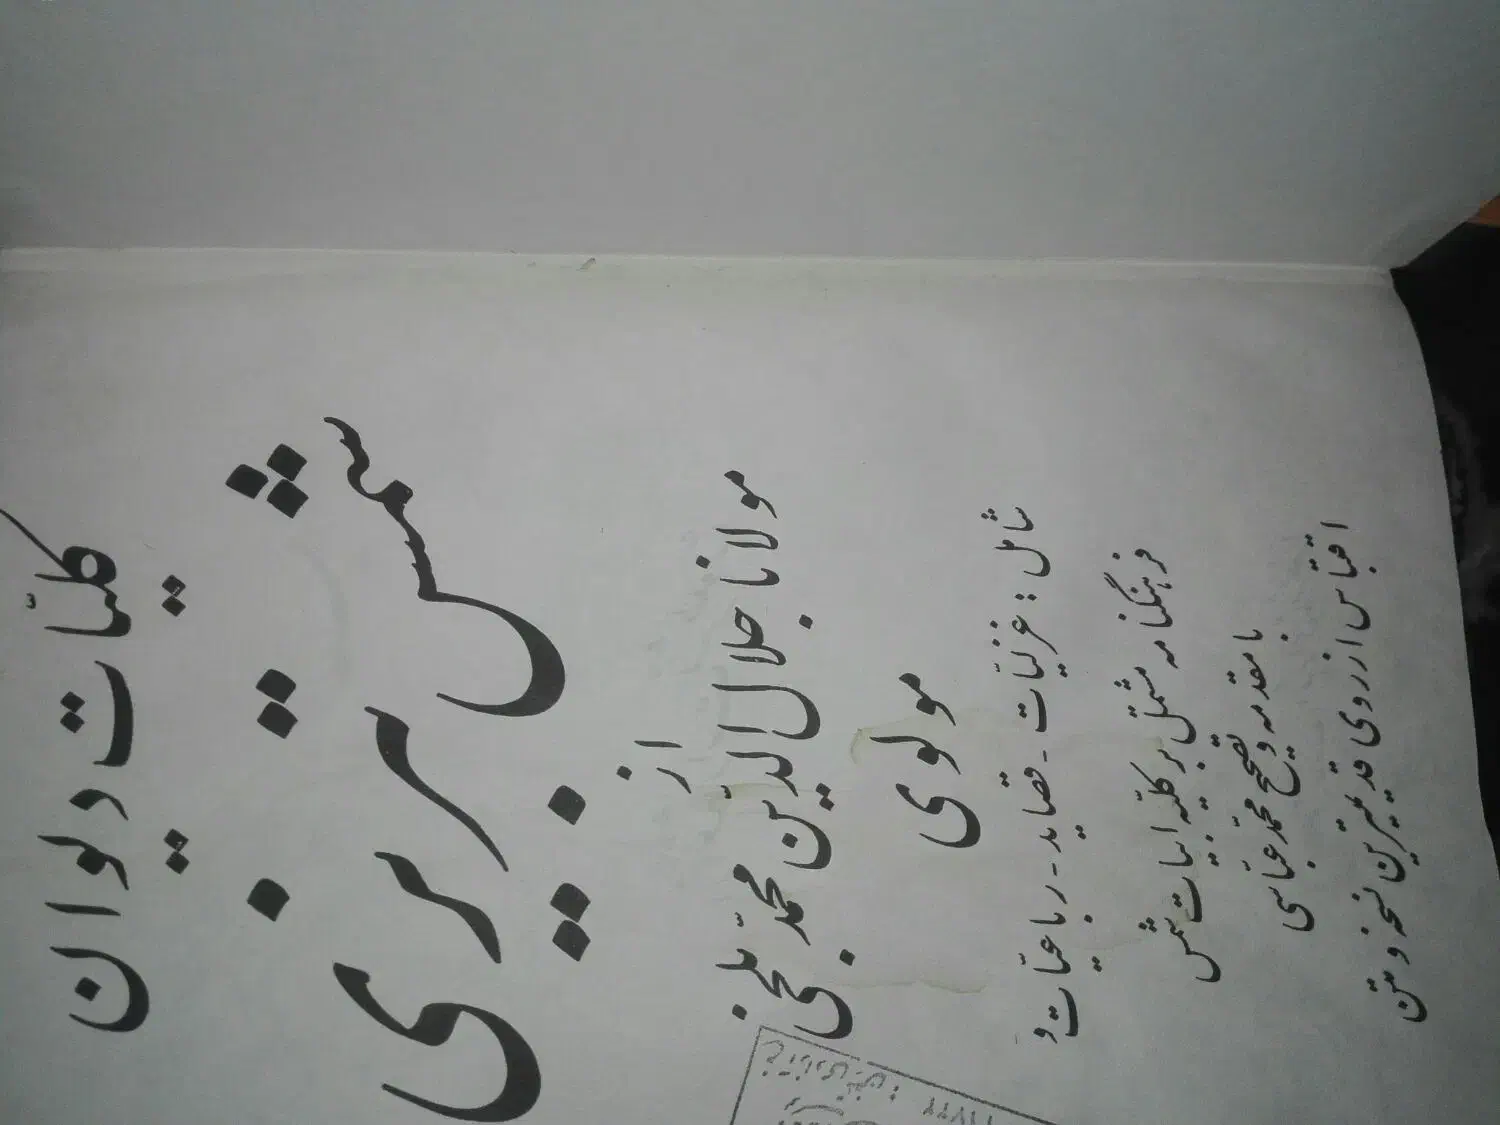 کلیّات دیوان
شمس تبریزی
از
مولانا جلال الدّین محمّد بلخی
مولوی
شامل: غزلیّات - قصاید - رباعیّات و
فرهنگنامه مشتمل بر کلیّه ابیات شمس
با مقدمه و تصحیح محمّد عبّاسی
اقتباس از روی قدیمترین نسخه و متن